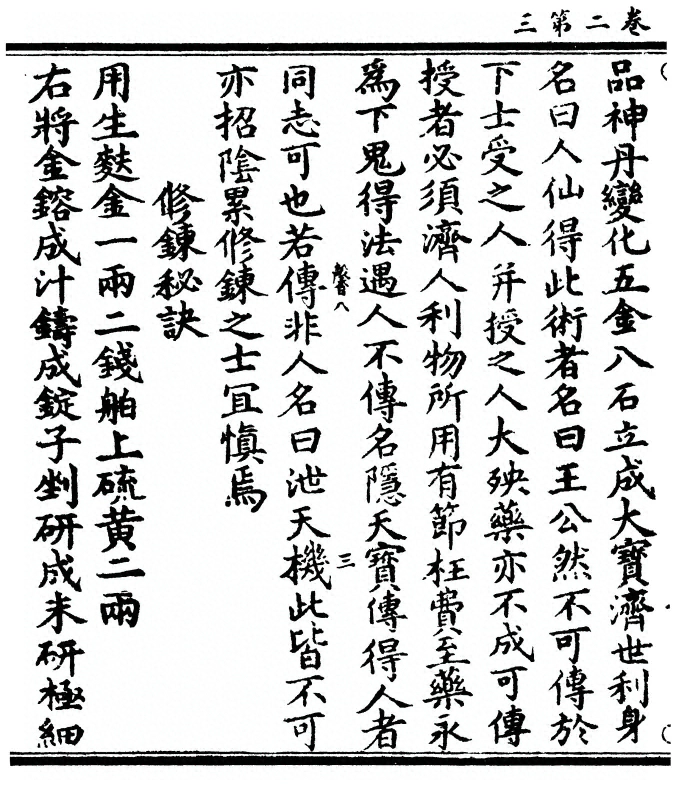 卷二第三
品神丹變化五金八石立成大寶濟世利身
名曰人仙得此術者名曰王公然不可傳於
下士受之人并授之人大殃藥亦不成可傳
授者必須濟人利物所用有節枉費至藥永
為下鬼得法遇人不傳名隱天寶傳得人者
馨八 三
同志可也若傳非人名曰泄天機此皆不可
亦招陰累修鍊之士冝慎焉
修鍊秘訣
用生麩金一兩二錢舶上硫黄二兩
右將金鎔成汁鑄成錠子剉研成末研極細